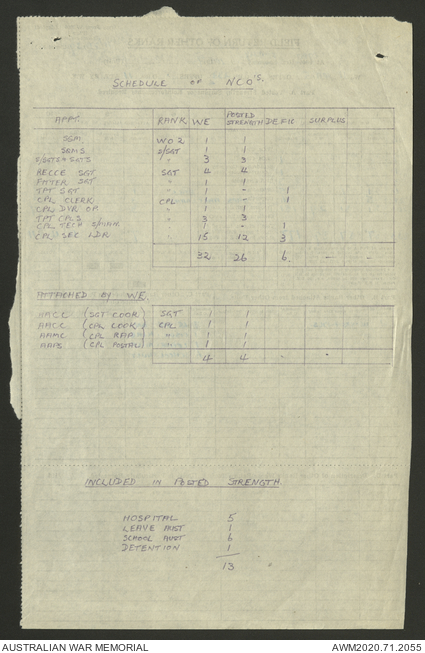 SCHEDULE OF NCO'S.
APPT. RANK WE POSTED STRENGTH DEFIC SURPLUS
SSM WO2 1 1
SSMS S/SGT 1 1
S/SGTS & SGTS " 3 3
RECCE SGT SGT 4 4
FITTER SGT " 1 1
TPT SGT " 1 - 1
CPL CLERK CPL 1 - 1
CPL DVR OP " 1 1
TPT CPLS " 3 3
CPL TECH S/MAN " 1 - 1
CPL SEC LDR " 15 12 3
32 26 6 - -
ATTACHED BY WE
AACC (SGT COOK) SGT 1 1
AACC (CPL COOK) CPL 1 1
AAMC (CPL RAP) " 1 1
(CPL POSTAL) " 1 1
4 4 - - -
INCLUDED IN POSTED STRENGTH.
HOSPITAL 5
LEAVE AUST 1
SCHOOL AUST 6
DETENTION 1
13
AUSTRALIAN WAR MEMORIAL
AWM2020.71.2055